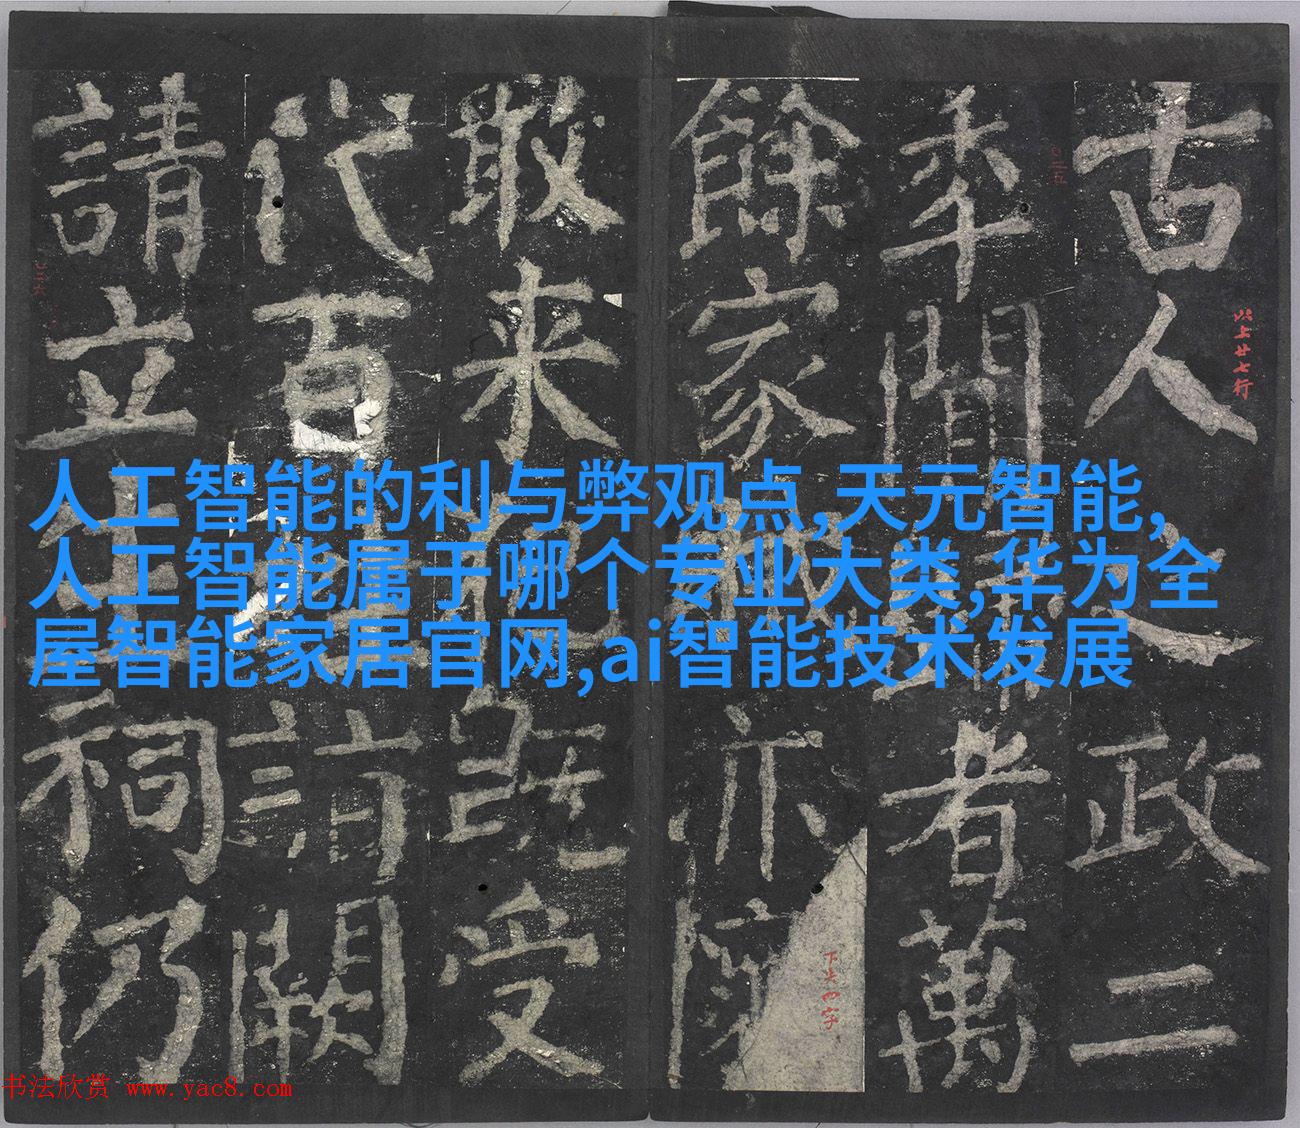 人工智能的利与弊观点,天元智能,
人工智能属于哪个专业大类,华为全
屋智能家居官网,ai智能技术发展
古人之政二
以上廿七行
年間歸者萬
餘家賊亦
下失四字
敢来犯既受
代百姓詣闕
請立生祠仍
书法欣赏 www.yac8.com